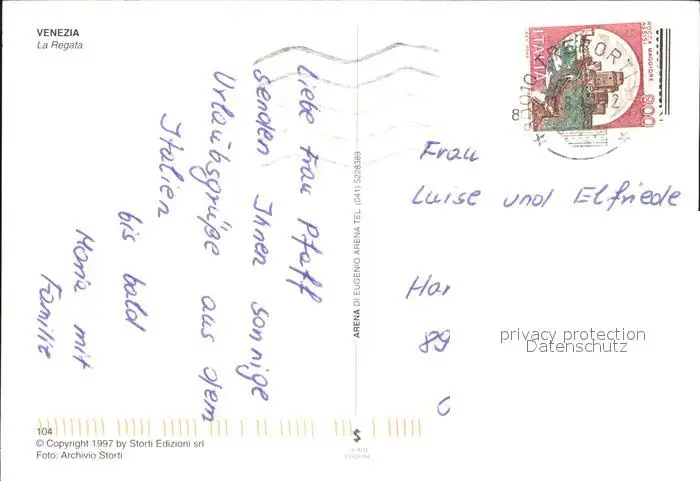 VENEZIA
La Regata
Liebe Frau Pfaff
senden Ihnen sonnige
Urlaubsgrüße aus dem
Italien
bis bald
Maria mit
Familie
ARENA DI EUGENIO ARENA TEL. (041) 5228389
ITALIA
ROCCA MAGGIORE
ASSISI
800
Frau
Luise und Elfriede
Har
89
privacy protection
Datenschutz
104
© Copyright 1997 by Storti Edizioni srl
Foto: Archivio Storti